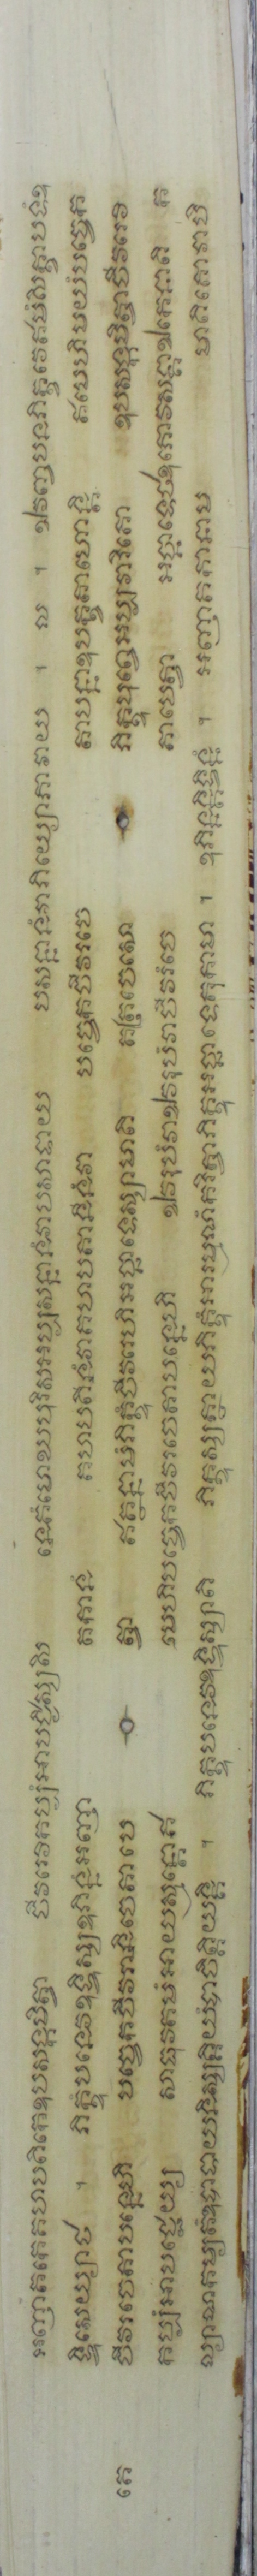 អញាតកេគហបតិកេឧបសង្កមិត្វា ចីវរេវិកប្បំអាបជ្ជិស្សសិ នេតំមោឃបុរិសអប្បសន្នានំវាបសាទាយ បសន្នានំវាភិយ្យោភាវាយ ។ ល ។ ឯវញ្ចបនភិក្ខវេឥមំសិក្ខាបទំឧ
ទ្ទិសេយ្យាថ ។ ភិក្ខុំបនេវឧទ្ទិស្សឧភិន្នំអញា តកានំ គហបតីនំវាគហបតានីនំវា បច្ចេកចីវរចេ តាបន្នាឧបក្ខដាហោន្តិ ឥមេហិមយំបច្ចេក
គេ ចីវរចេតាបន្នេហិ បច្ចេកចីវរានិចេតាបេ ត្វា ឥត្ថន្នាមំភិក្ខុំចីវរេហិអច្ឆាទេស្សាមាតិ តត្រចេសោ ភិក្ខុបុព្វេអប្បវារិតោ ឧបសង្កមិត្វាចីវរេវិ
កប្បំអាបជ្ជេយ្យ សាធុវតមំអាយស្មន្តោឥ មេហិបច្ចេកចីវរចេតាបន្នេហិ ឯវរូបំវាឯវរូបំវាចីវរំចេ តាបេត្វា អច្ឆាទេថឧភោវសន្តាឯកេនាតិ ក
ល្យាណកម្យតំឧបាទាយនិស្សគ្គិយំបាចិត្តិយន្តិ ។ ភិក្ខុបនេវឧទ្ទិស្សាតិ ភិក្ខុស្សត្ថាយភិក្ខុំអារម្មណំករិត្វាភិក្ខុអច្ឆាទេតុកាមា ។ ឧភិន្នន្តិទ្វិន្នំ ។ អញាតកានាម មាតិតោវាបិ